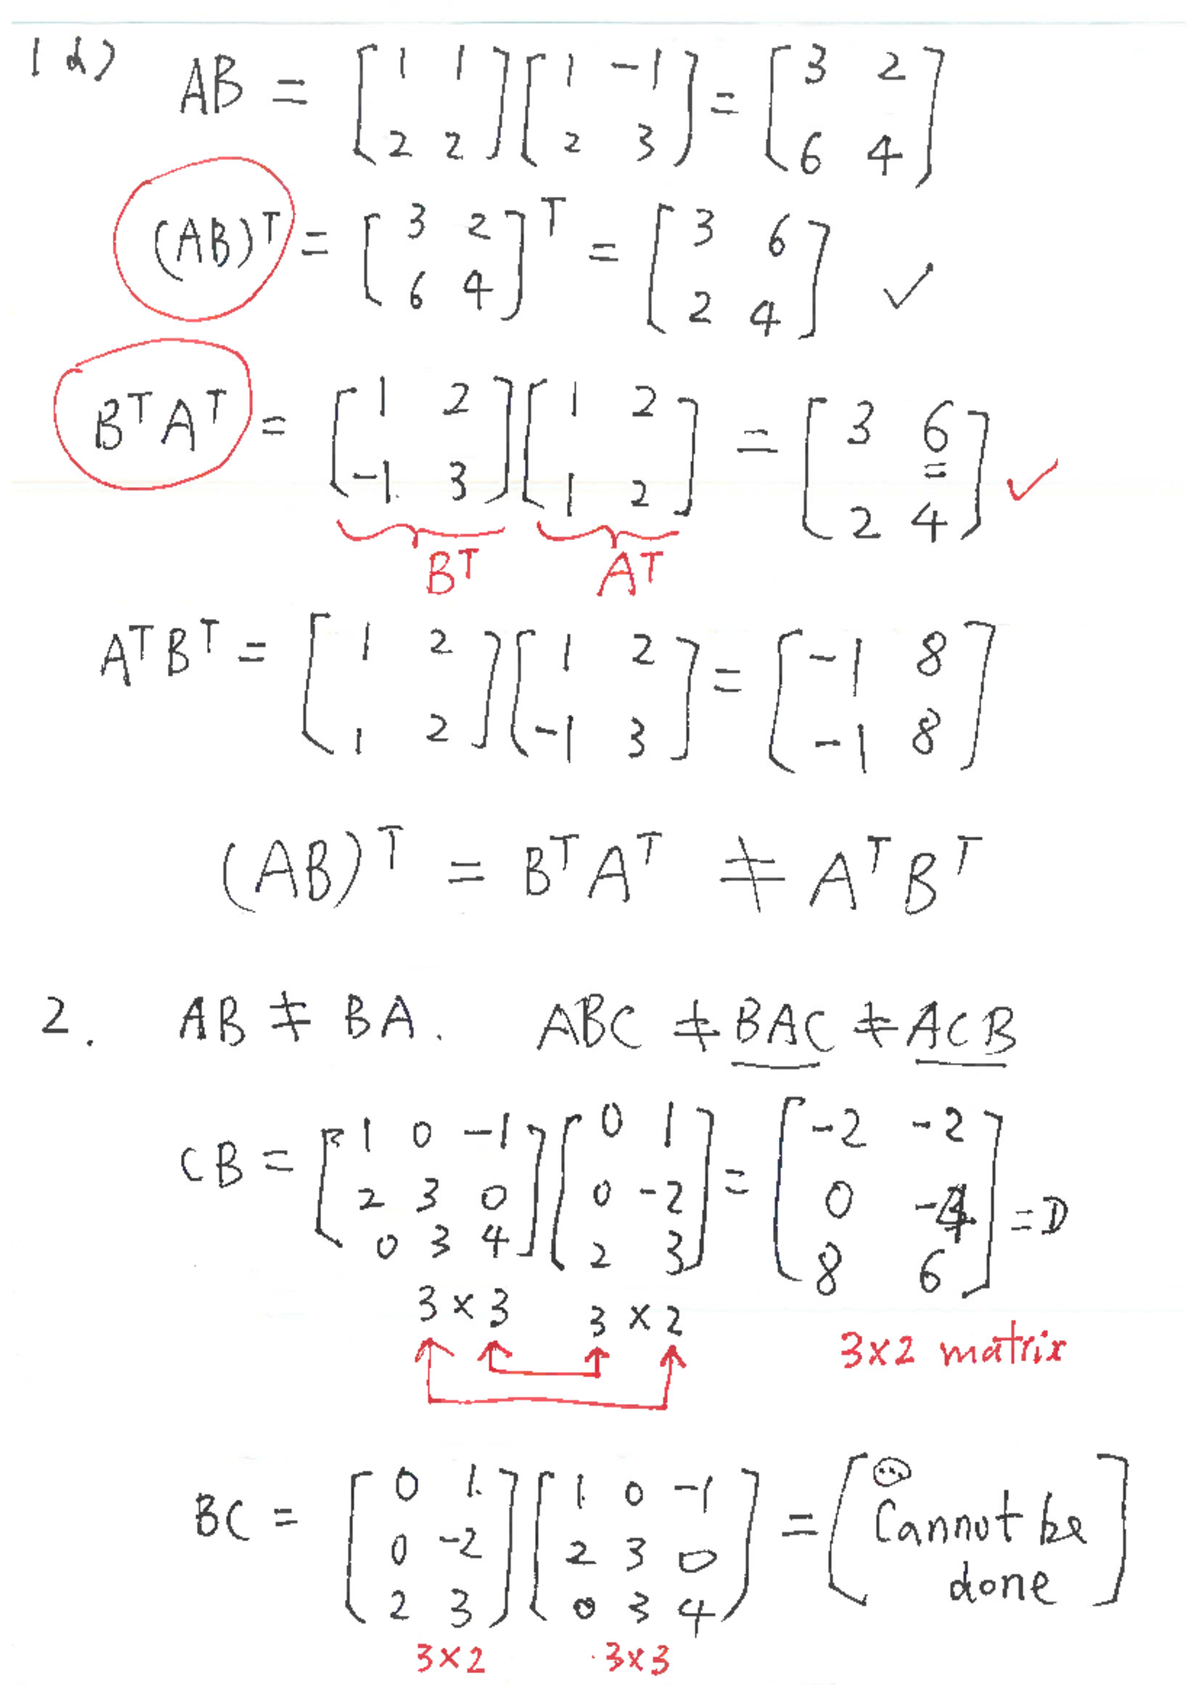 1 d) AB = [1 1; 2 2][1 -1; 2 3] = [3 2; 6 4]
(AB)ᵀ = [3 2; 6 4]ᵀ = [3 6; 2 4] ✓
BᵀAᵀ = [1 2; -1 3][1 2; 1 2] = [3 6; 2 4] ✓
Bᵀ Aᵀ
AᵀBᵀ = [1 2; 1 2][1 2; -1 3] = [-1 8; -1 8]
(AB)ᵀ = BᵀAᵀ ≠ AᵀBᵀ
2. AB ≠ BA. ABC ≠ BAC ≠ ACB
CB = [1 0 -1; 2 3 0; 0 3 4][0 1; 0 -2; 2 3] = [-2 -2; 0 -4; 8 6] = D
3 × 3 3 × 2
3×2 matrix
BC = [0 1; 0 -2; 2 3][1 0 -1; 2 3 0; 0 3 4] = [Cannot be done]
3×2 3×3